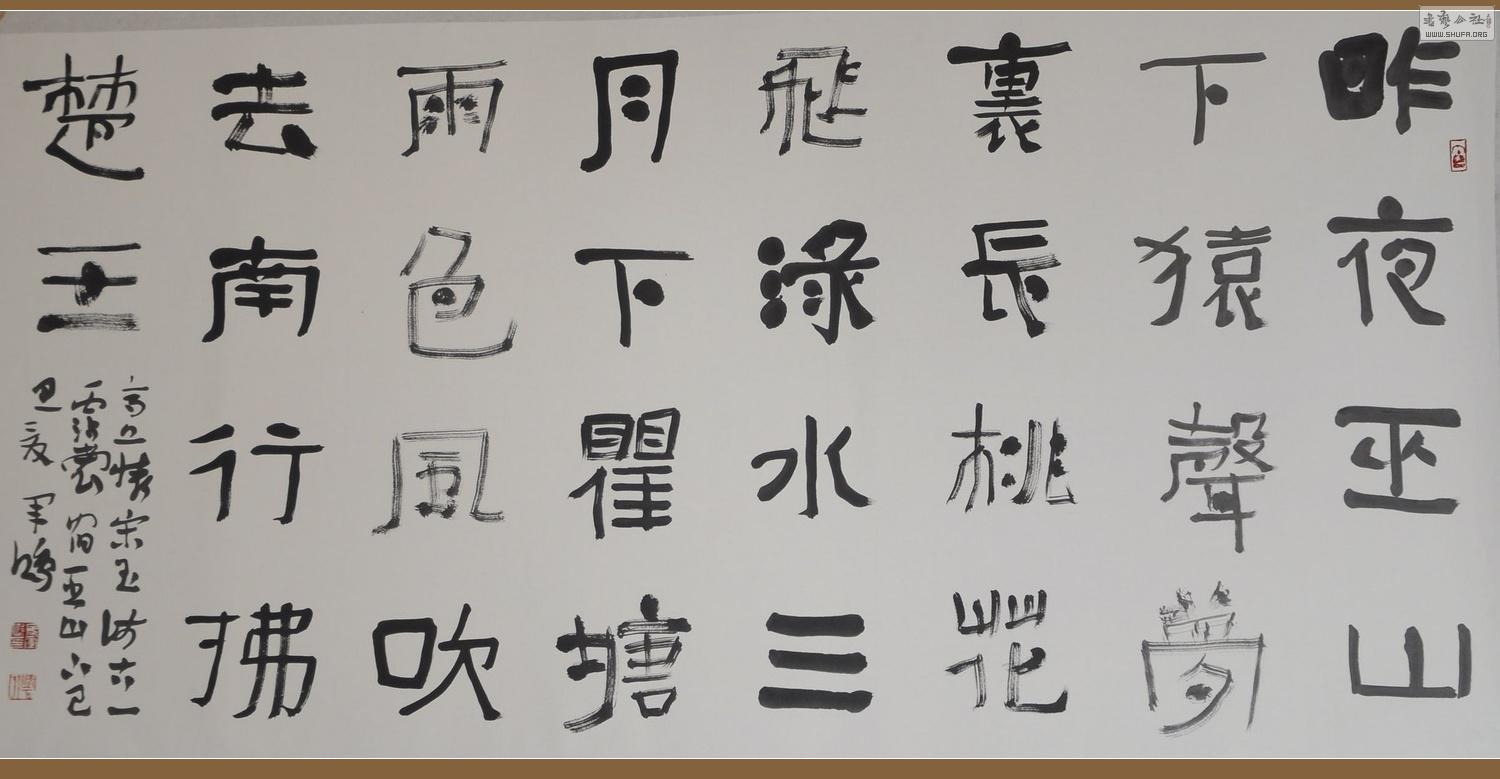 昨夜巫山
下猿聲夢
裏長桃花
飛淥水三
月下瞿塘
雨色風吹
去南行拂
楚王
高丘懷宋玉訪古一
霑裳宿巫山下
己亥軍鵬
書藝公社
WWW.SHUFA.ORG